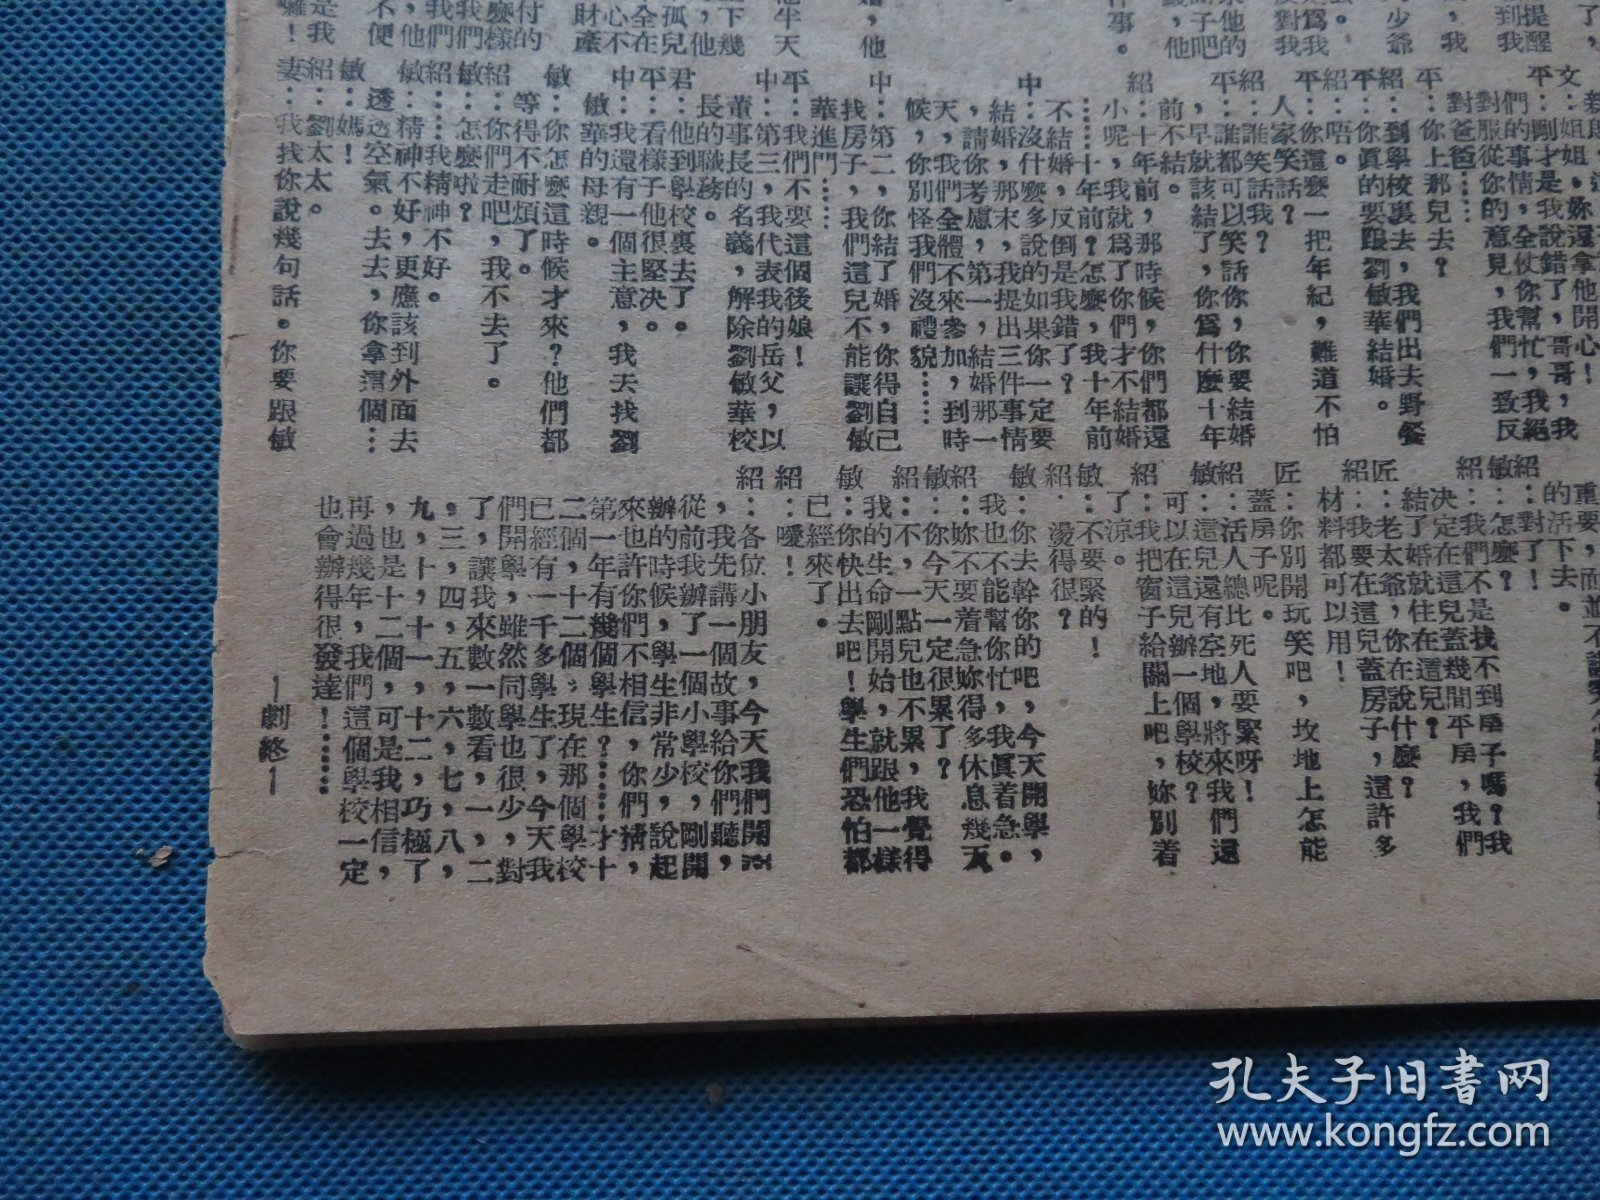 了，
提醒
到我
，我
少爺
是爲我
反對我
家他的
子吧
，他
件事。
婚，他
他半天
下幾
，他
孤兒
全在
心不
財產
付的
麽樣
我們
，他
是我
不便
囉！
文：姐姐，妳還拿他開心！
平：剛才是我說錯了，哥哥，我
們的事情，全仗你幫忙，我絕
對服從你的意見，我們一致反
對爸爸……
平：你上那兒去？
紹：到學校裏去，我們出去野餐
平：你眞的要跟劉敏華結婚。
紹：唔。
平：你這麽一把年紀，難道不怕
人家笑話？
紹：誰笑話我？
平：誰都可以笑話你，你要結婚
，早就該結了，你爲什麽十年
前不結。
紹：十年前，那時候，你們都還
小呢，我就爲了你們才不結婚
……十年前？怎麽，我十年前
不結婚，反倒是我錯了？
中：沒什麽多說的如果你一定要
結婚，那末，我提出三件事情
，請你考慮，第一，結婚那一
天，我們全體不來參加，到時
候，你別怪我們沒禮貌……
中：第二，你結了婚，你得自己
找房子，我們這兒不能讓劉敏
華進門……
平：我們不要這個後娘！
中：第三，我代表我的岳父，以
董事長的名義，解除劉敏華校
長的職務。
君：他到學校裏去了。
平：看樣子他很堅决。
中：我還有一個主意，我去找劉
敏華的母親。
敏：你怎麽這時候才來？他們都
等得不耐煩了。
紹：你們走吧，我不去了。
敏：怎麽啦？
紹：……我精神不好。
敏：精神不好，更應該到外面去
透透空氣。去去，你拿這個…
敏：媽！
紹：劉太太。
妻：我找你說幾句話。你要跟敏
重要，而並不
的活下去。
紹：對了！
敏：怎麽？
紹：我們不是找不到房子嗎？我
决定在這兒蓋幾間平房，我們
結了婚就住在這兒？
匠：老太爺，你在說什麽？
紹：我要在這兒蓋房子，這許多
材料都可以用！
匠：你別開玩笑吧，坟地上怎能
蓋房子呢。
紹：活人總比死人要緊呀！
敏：這兒還有空地，將來我們還
可以在這兒辦一個學校？
紹：我把窗子給關上吧，妳別着
了凉。
敏：不要緊的！
紹：燙得很？
敏：你去幹你的吧，今天開學，
我也不能幫你忙，我眞着急。
紹：妳不要着急妳得多休息幾天
敏：你今天一定很累了？
紹：不，一點兒也不累，我覺得
我的生命剛開始，就跟他一樣
敏：你快出去吧！學生們恐怕都
已經來了。
紹：噯！
紹：各位小朋友，今天我們開
，我先講一個故事給你們聽，
從前我辦了一個小學校，剛開
辦的時候，學生非常少，說起
來也許你們不相信，你們猜，
第一年有幾個學生？……才十
二個，十二個，現在那個學校
已經有一千多學生了，今天我
們開學，雖然同學也很少，對
了，讓我來數一數看，一，二
，三，四，五，六，七，八，
九，十，十一，十二，巧極了
，也是十二個，可是我相信，
再過幾年，我們這個學校一定
也會辦得很發達！……
—劇終—
孔夫子旧書网
www.kongfz.com